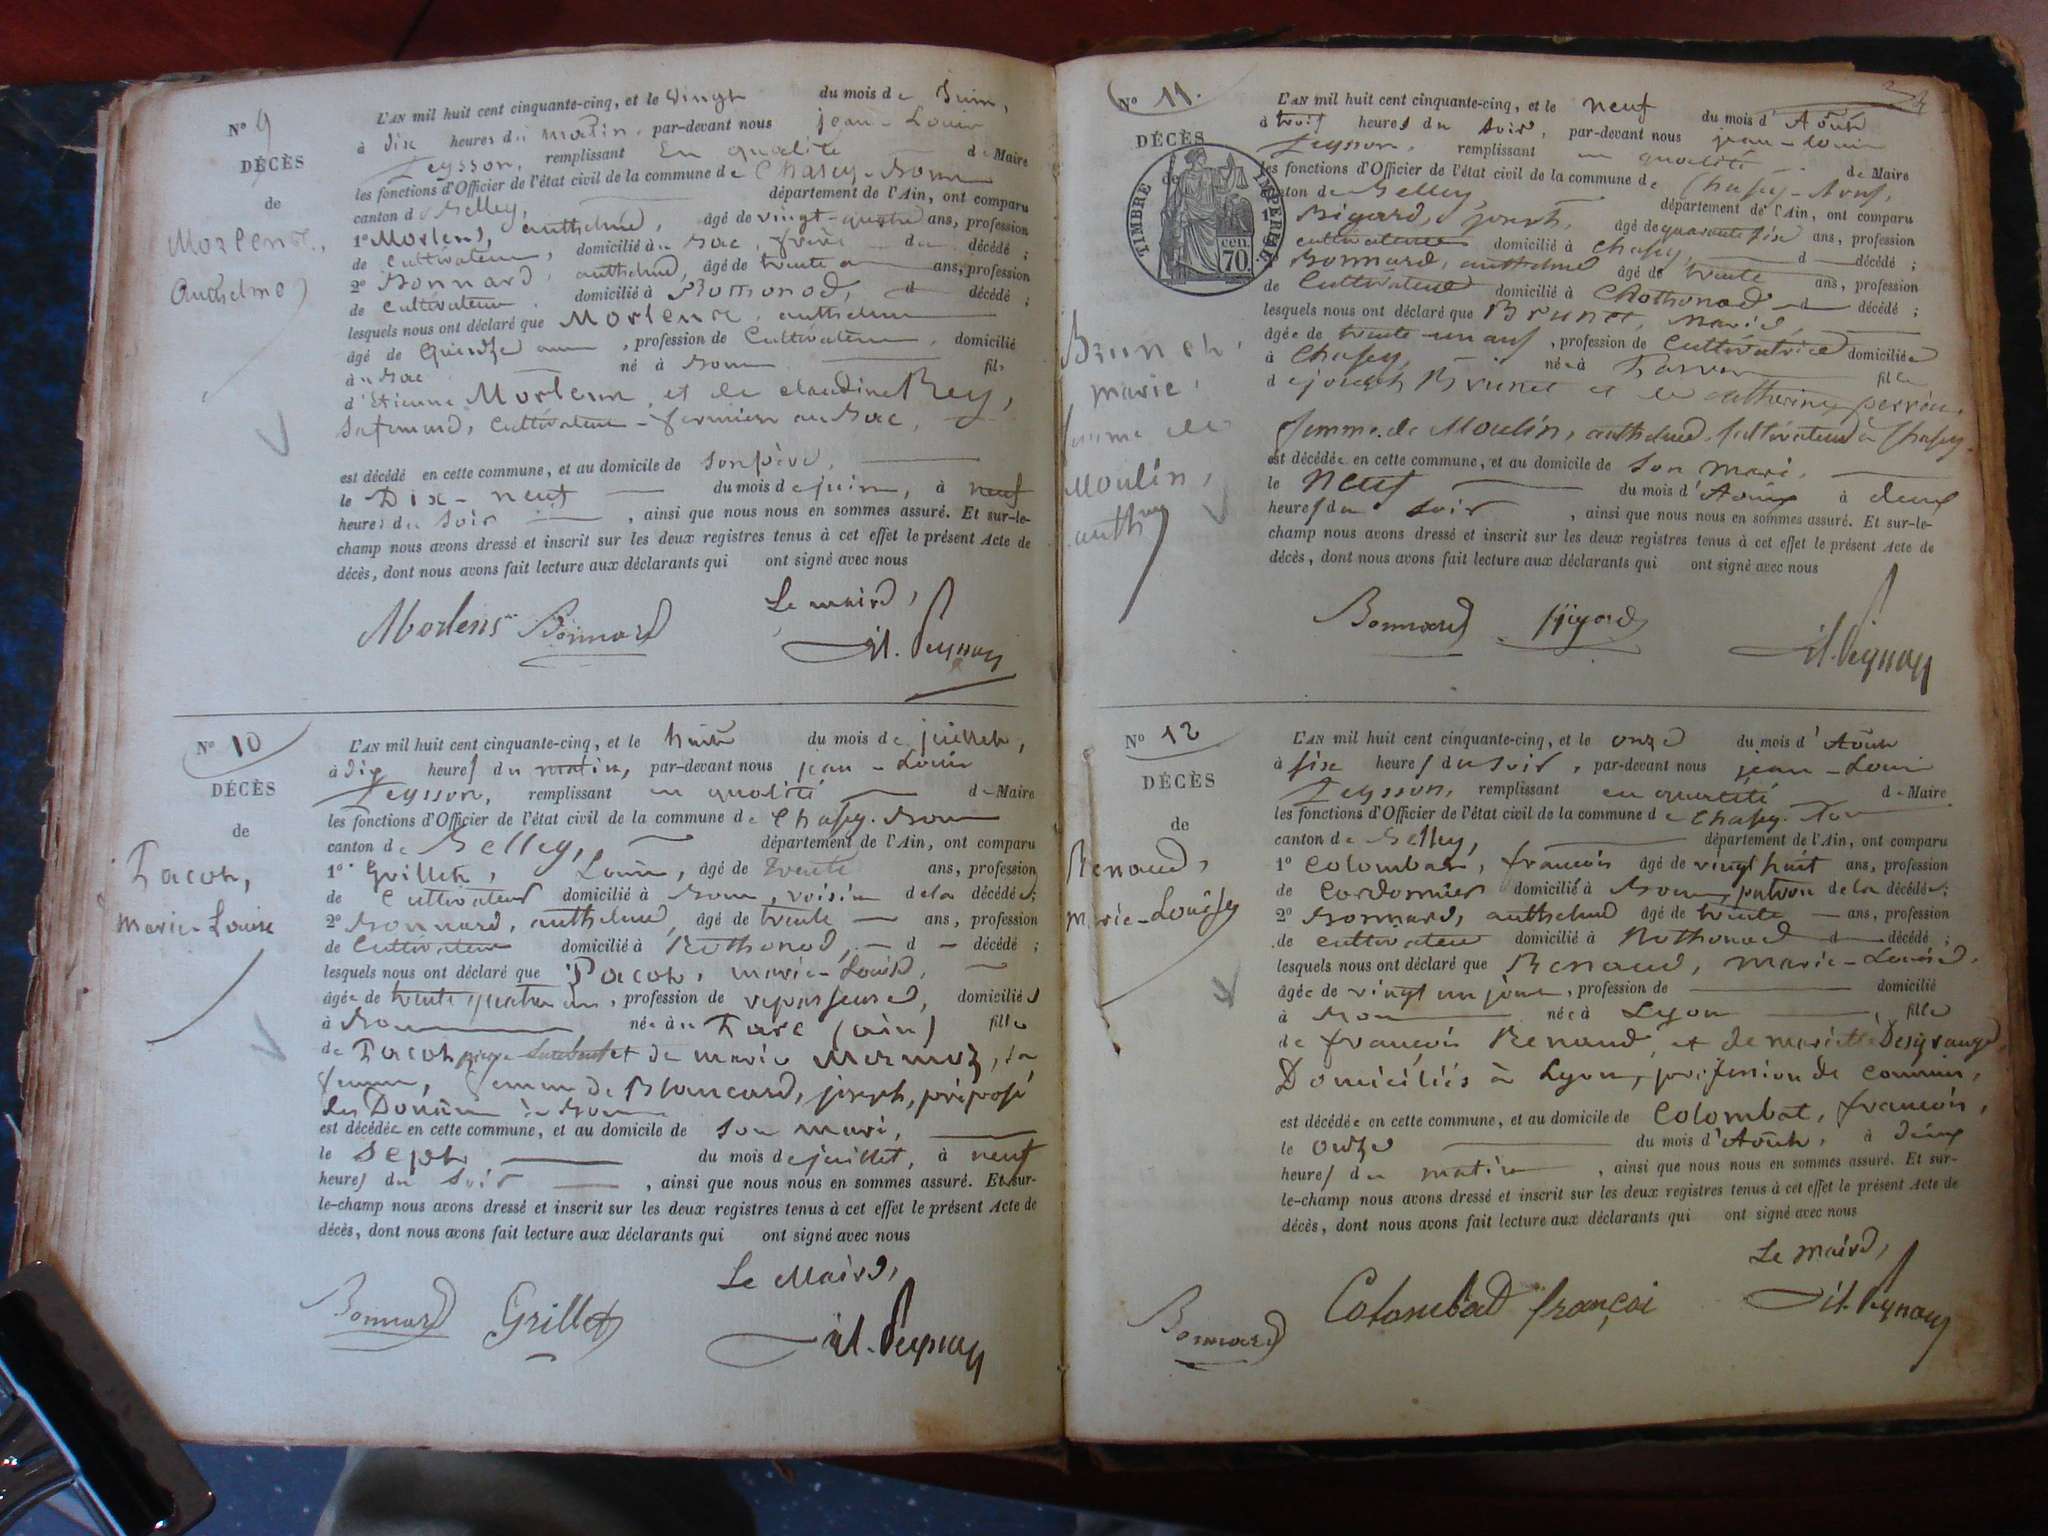 Nº 9
DÉCÈS
de
Morlens,
Anthelme
L'AN mil huit cent cinquante-cinq, et le vingt du mois de Juin,
à dix heures du matin, par-devant nous jean-Louis
remplissant en qualité de Maire
les fonctions d'Officier de l'état civil de la commune de Chasey-Bons
canton de Belley, département de l'Ain, ont comparu
1º Morlens, anthelme, âgé de vingt-quatre ans, profession
de Cultivateur, domicilié au Sac, frère du décédé ;
2º Bonnard, anthelme, âgé de trente ans, profession
de Cultivateur domicilié à d décédé ;
lesquels nous ont déclaré que Morlens, anthelme
âgé de Quinze ans, profession de Cultivateur, domicilié
au Sac né à Bons fils
d'Etienne Morlens et de claudine Rey,
Sa femme, Cultivateur-fermier au Sac,
est décédé en cette commune, et au domicile de son père,
le Dix-neuf du mois de juin, à neuf
heures du Soir, ainsi que nous nous en sommes assuré. Et sur-le-
champ nous avons dressé et inscrit sur les deux registres tenus à cet effet le présent Acte de
décès, dont nous avons fait lecture aux déclarants qui ont signé avec nous
Le maire,
Morlens Bonnard
Nº 10
DÉCÈS
de
Pacot,
marie-Louise
L'AN mil huit cent cinquante-cinq, et le huit du mois de juillet,
à dix heures du matin, par-devant nous jean-Louis
remplissant en qualité de Maire
les fonctions d'Officier de l'état civil de la commune de Chasey-Bons
canton de Belley, département de l'Ain, ont comparu
1º Grillet, Louis, âgé de trente ans, profession
de Cultivateur domicilié à Bons, voisin de la décédée;
2º Bonnard, anthelme, âgé de trente ans, profession
de Cultivateur domicilié à Rothonod, d décédé ;
lesquels nous ont déclaré que Pacot, marie-Louise,
âgée de trente quatre ans, profession de repasseuse, domiciliée
à Bons née à fille
de Pacot et de marie mermoz, sa
femme, femme de Blancard, joseph, préposé
des Douanes à Bons
est décédée en cette commune, et au domicile de son mari,
le Sept du mois de juillet, à neuf
heures du Soir, ainsi que nous nous en sommes assuré. Et sur-
le-champ nous avons dressé et inscrit sur les deux registres tenus à cet effet le présent Acte de
décès, dont nous avons fait lecture aux déclarants qui ont signé avec nous
Le Maire,
Bonnard Grillet
Nº 11.
DÉCÈS
de
TIMBRE IMPERIAL
70 cen.
Brunet,
marie,
femme de
Moulin,
anthme
L'AN mil huit cent cinquante-cinq, et le neuf du mois d'Août
à trois heures du soir, par-devant nous jean-Louis
remplissant en qualité de Maire
les fonctions d'Officier de l'état civil de la commune de Chasey-Bons,
canton de Belley, département de l'Ain, ont comparu
joseph, âgé de quarante six ans, profession
cultivateur domicilié à Chasey, d décédé ;
Bonnard, anthelme âgé de trente ans, profession
de Cultivateur domicilié à Rothonod d décédé ;
lesquels nous ont déclaré que Brunet, marie,
âgée de trente un ans, profession de Cultivatrice domiciliée
à Chasey, née à fille
de joseph Brunet et de catherine perrin,
femme de Moulin, anthelme, Cultivateur à Chasey
est décédée en cette commune, et au domicile de Son mari,
le Neuf du mois d'Août à deux
heures du soir, ainsi que nous nous en sommes assuré. Et sur-le-
champ nous avons dressé et inscrit sur les deux registres tenus à cet effet le présent Acte de
décès, dont nous avons fait lecture aux déclarants qui ont signé avec nous
Bonnard
Nº 12
DÉCÈS
de
Renaud,
marie-Louise
L'AN mil huit cent cinquante-cinq, et le onze du mois d'Août
à six heures du soir, par-devant nous jean-Louis
remplissant en qualité de Maire
les fonctions d'Officier de l'état civil de la commune de Chasey-Bons
canton de Belley, département de l'Ain, ont comparu
1º Colombat, françois âgé de vingt huit ans, profession
de Cordonnier domicilié à Bons, patron de la décédée;
2º Bonnard, anthelme âgé de trente ans, profession
de cultivateur domicilié à Rothonod d décédé ;
lesquels nous ont déclaré que Renaud, marie-Louise,
âgée de vingt un jours, profession de domicilié
à Bons née à Lyon, fille
de françois Renaud, et de mariette
Domiciliés à Lyon, profession de commis,
est décédée en cette commune, et au domicile de Colombat, françois,
le onze du mois d'Août, à deux
heures du matin, ainsi que nous nous en sommes assuré. Et sur-
le-champ nous avons dressé et inscrit sur les deux registres tenus à cet effet le présent Acte de
décès, dont nous avons fait lecture aux déclarants qui ont signé avec nous
Le maire,
Bonnard Colombat françoi